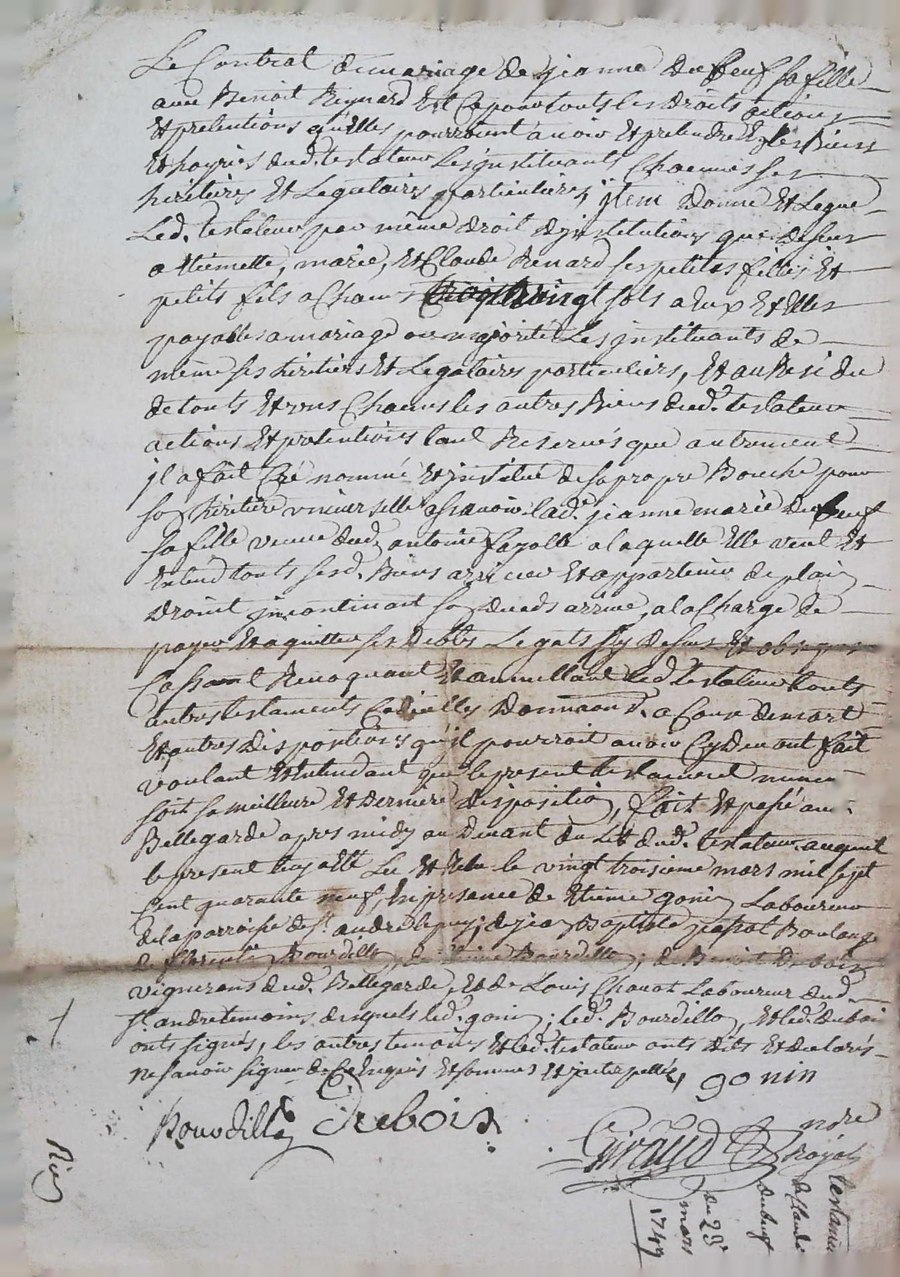 Le Contrat de mariage de jeanne Dubeuf sa fille
avec Benoit Reynard Et Ce pour touts les Droits actions
Et pretentions qu'Elles pourroient avoir Et pretendre Es biens
Et hoyries dud. testateur Les jnstituants Chacunes ses
hiritieres Et Legataires particulieres, jtem Donne Et Legue
Led. testateur par même droit djnstitutions que dessus
a Etiennette, marie, Et Claude Renard ses petites filles Et
petits fils a Chacuns vingt sols a Eux Et Elles
payables a mariage ou majorité Les jnstituants de
même ses hiritiers Et Legataires particuliers, Et au Residu
de touts Et uns Chacuns les autres Biens dud. testateur
actions Et pretentions tant Reservés que autrement
jl a fait Créé nommé Et jnstitué de sa propre Bouche pour
sa hiritiere universelle assavoir lad. jeanne marie Dubeuf
sa fille veuve dud. antoine fayolle a laquelle Elle veut Et
Entend touts sesd. Biens arriver Et appartenir de plain
Droint jncontinant son deceds arrivé, a la Charge de
payer Et aquitter ses Debts Legats sy dessus Et obseques
Cassant Revoquant Et annullant Led. testateur touts
autres testaments Codicilles Donnaons. a Cause de mort
Et autres dispositions qu'jl pourroit avoir Cy devant fait
voulant Et Entendant que le present testament
soit sa meilleure Et derniere disposition, fait Et passé aud.
Bellegarde apres midy au devant du Lit dud. testateur auquel
le present Luy a Eté Leu Et Releu le vingt troisieme mars mil sept
Cent quarante neuf En presence de Etiene gonin Laboureur
de la parroisse de St. andre le puy; de jean Baptiste Boulanger
de Bourdillon, de Bourdillon, de Benoit Dubois
vignerons dud. Bellegarde, Et de Louis Chavot Laboureur dud.
St. andre temoins desquels led. gonin; led. Bourdillon, Et led. dubois
onts signés, les autres temoins Et led. testateur onts dits Et declarés
ne savoir signer de Ce Enquis Et sommés Et jnterpellés, gonin
Bourdillon Dubois
Giraud
ndre
royal
testament
de Claude
dubeuf
du 23
mars
1749